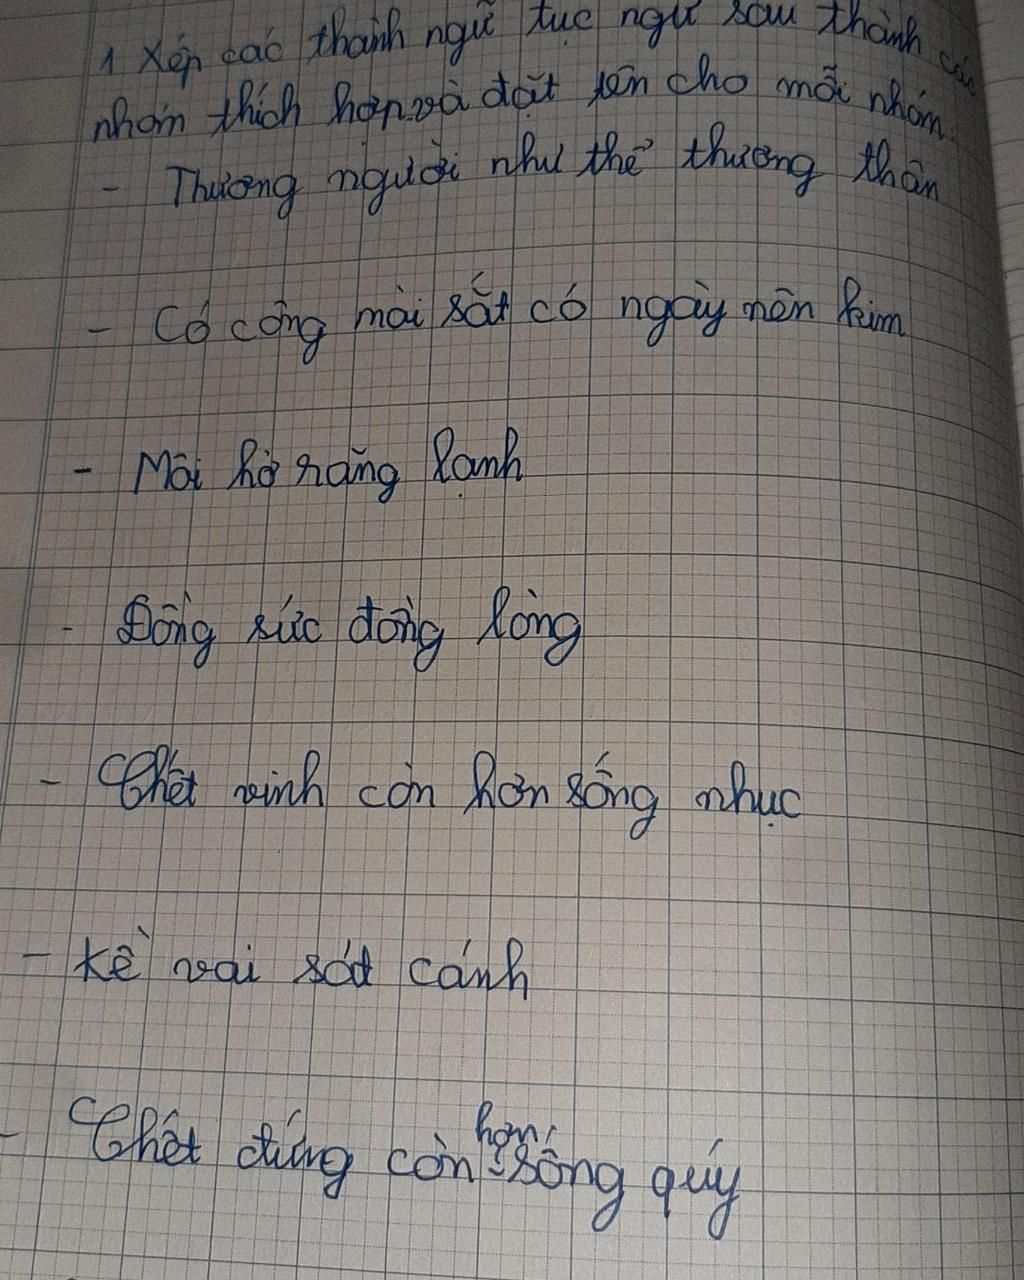 1 Xếp các thành ngữ tục ngữ sau thành các
nhóm thích hợp và đặt tên cho mỗi nhóm.
- Thương người như thể thương thân
- Có công mài sắt có ngày nên kim
- Môi hở răng lạnh
- Đồng sức đồng lòng
- Chết vinh còn hơn sống nhục
- Kề vai sát cánh
- Chết đứng còn hơn sống quý